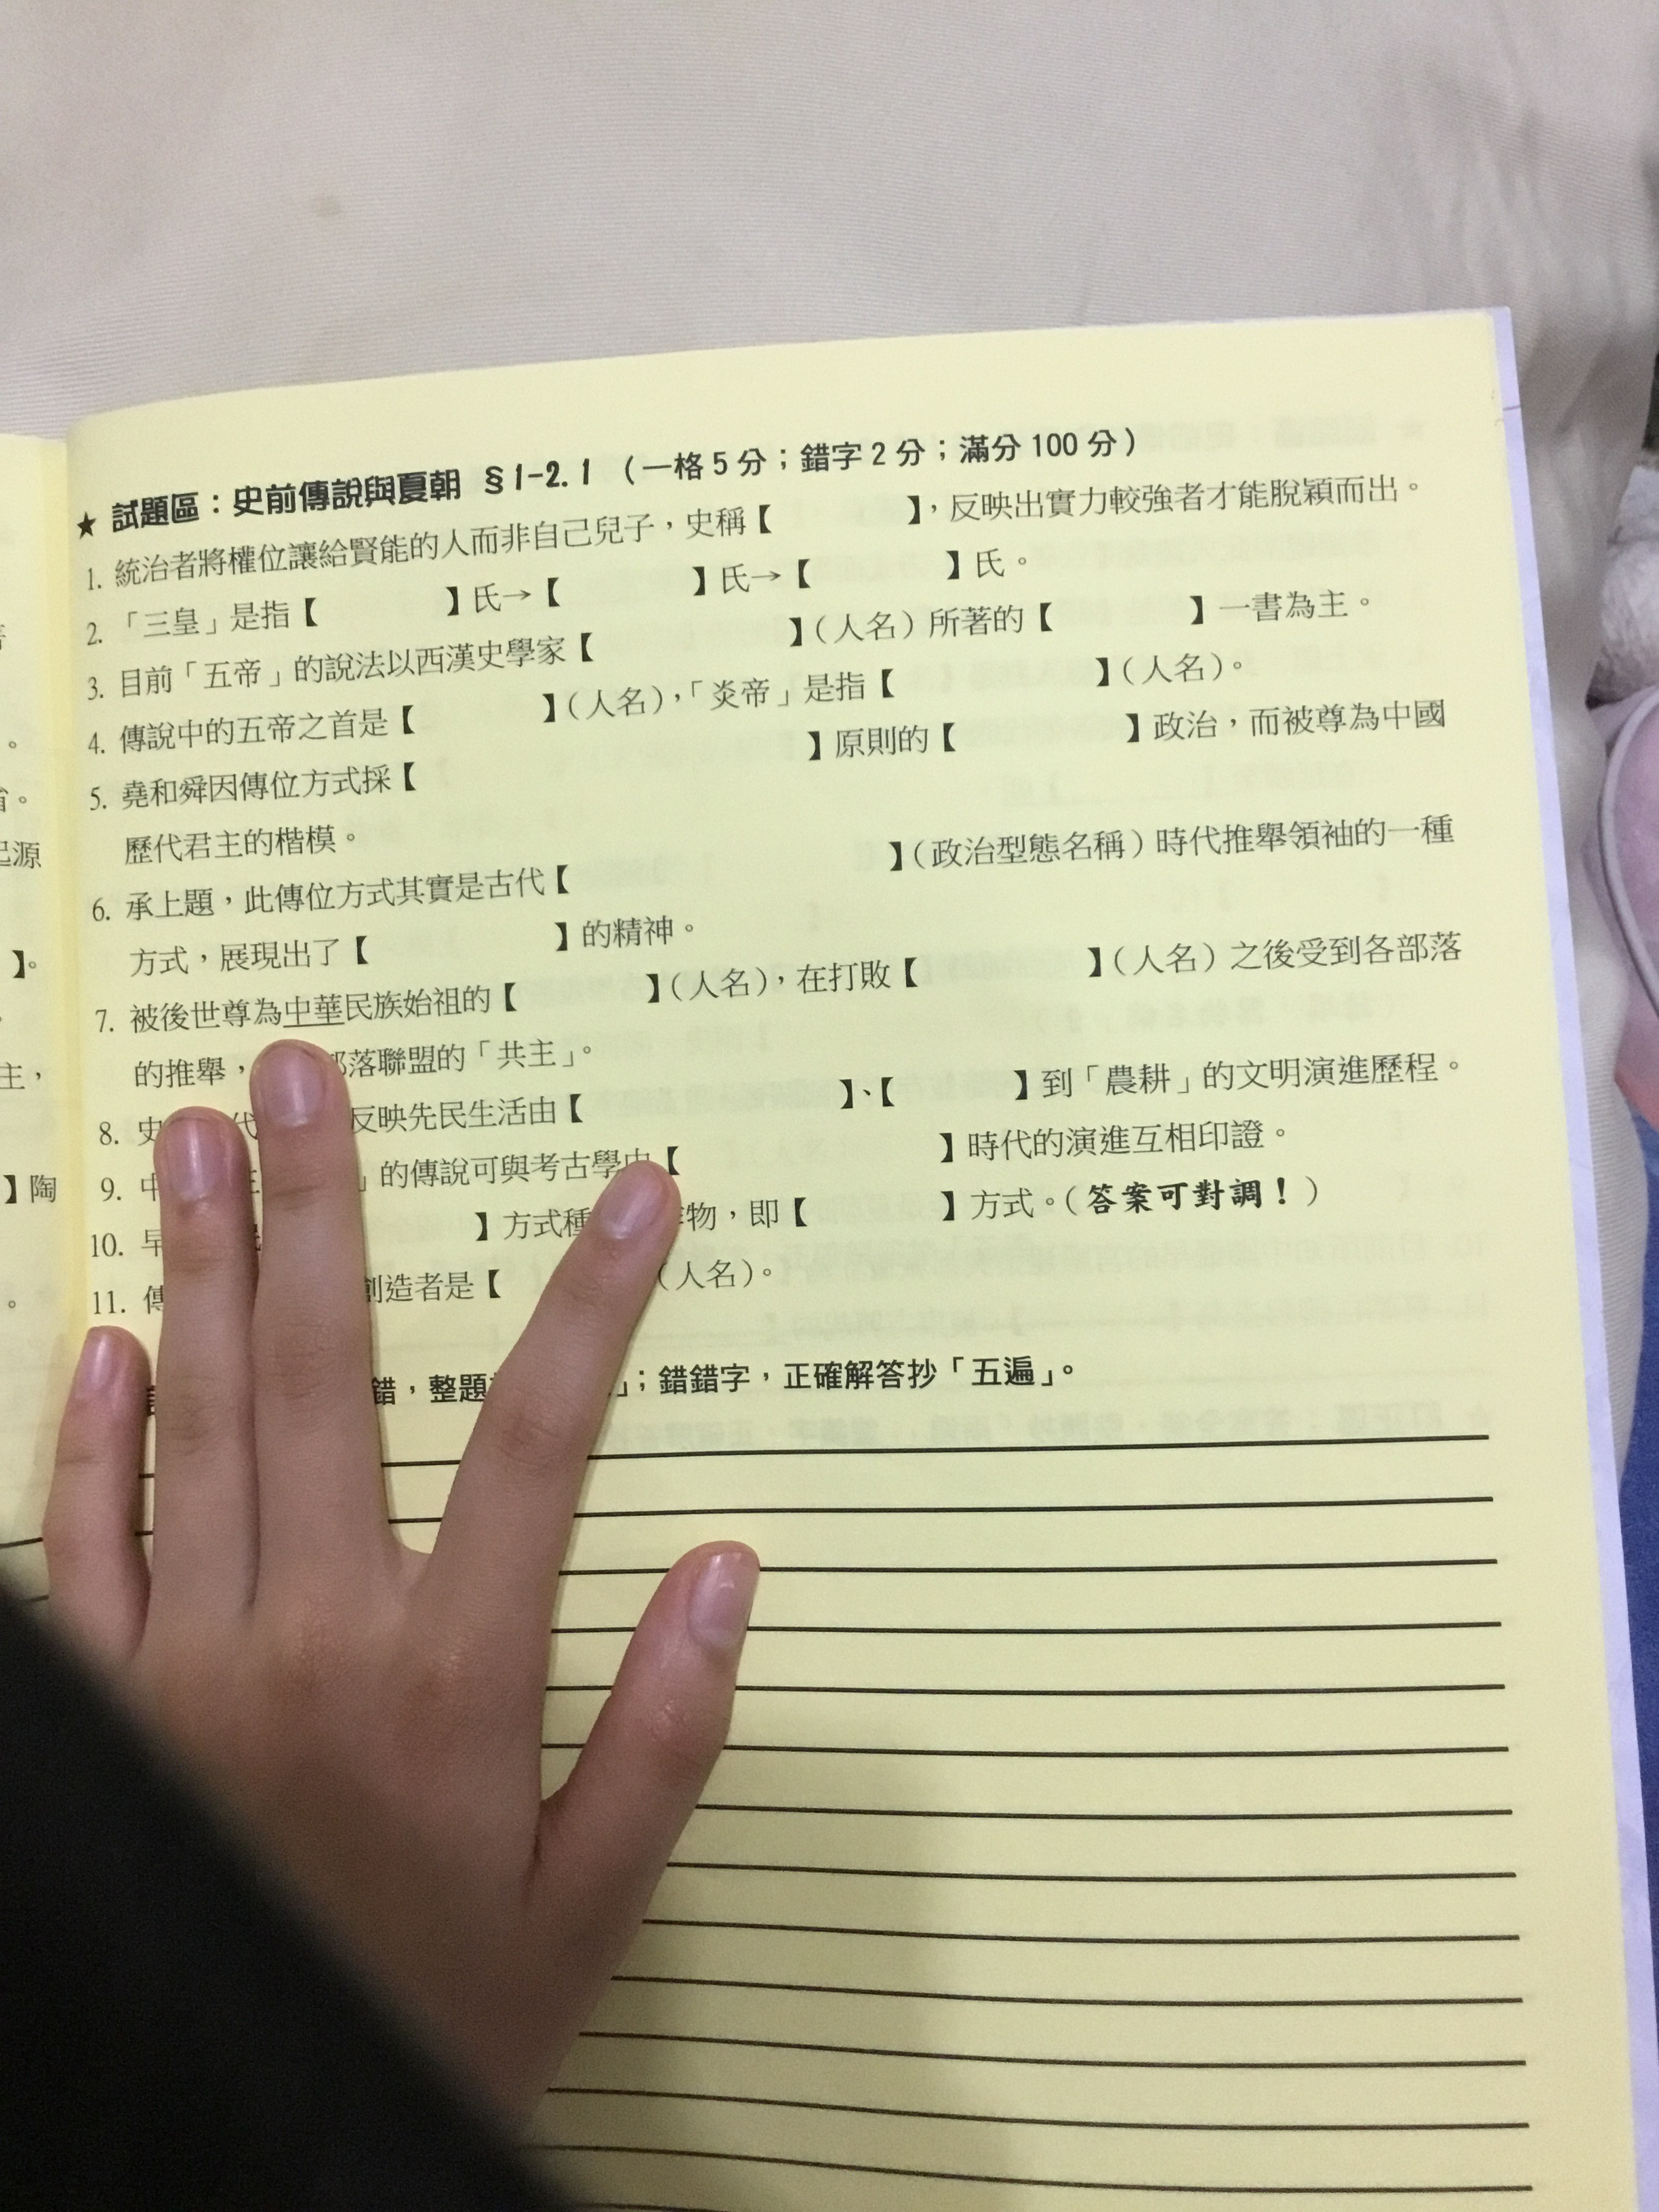 ★ 試題區：史前傳說與夏朝 §1-2.1 （一格5分；錯字2分；滿分100分）
1. 統治者將權位讓給賢能的人而非自己兒子，史稱【 】，反映出實力較強者才能脫穎而出。
2. 「三皇」是指【 】氏→【 】氏→【 】氏。
3. 目前「五帝」的說法以西漢史學家【 】（人名）所著的【 】一書為主。
4. 傳說中的五帝之首是【 】（人名），「炎帝」是指【 】（人名）。
5. 堯和舜因傳位方式採【 】原則的【 】政治，而被尊為中國
歷代君主的楷模。
6. 承上題，此傳位方式其實是古代【 】（政治型態名稱）時代推舉領袖的一種
方式，展現出了【 】的精神。
7. 被後世尊為中華民族始祖的【 】（人名），在打敗【 】（人名）之後受到各部落
的推舉， 部落聯盟的「共主」。
8. 史 代 反映先民生活由【 】、【 】到「農耕」的文明演進歷程。
9. 中 」的傳說可與考古學中【 】時代的演進互相印證。
10. 早 】方式種 物，即【 】方式。（答案可對調！）
11. 傳 創造者是【 （人名）。
錯，整題 」；錯錯字，正確解答抄「五遍」。
。
。
起源
】。
主，
】陶
。